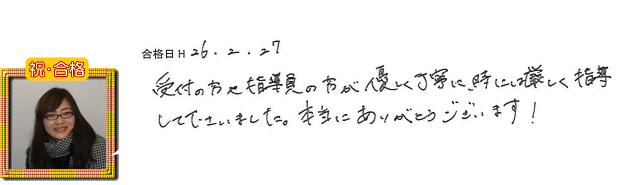 祝・合格
合格日 H 26.2.27
受付の方や指導員の方が優しく丁寧に、時には厳しく指導
して下さいました。本当にありがとうございます!